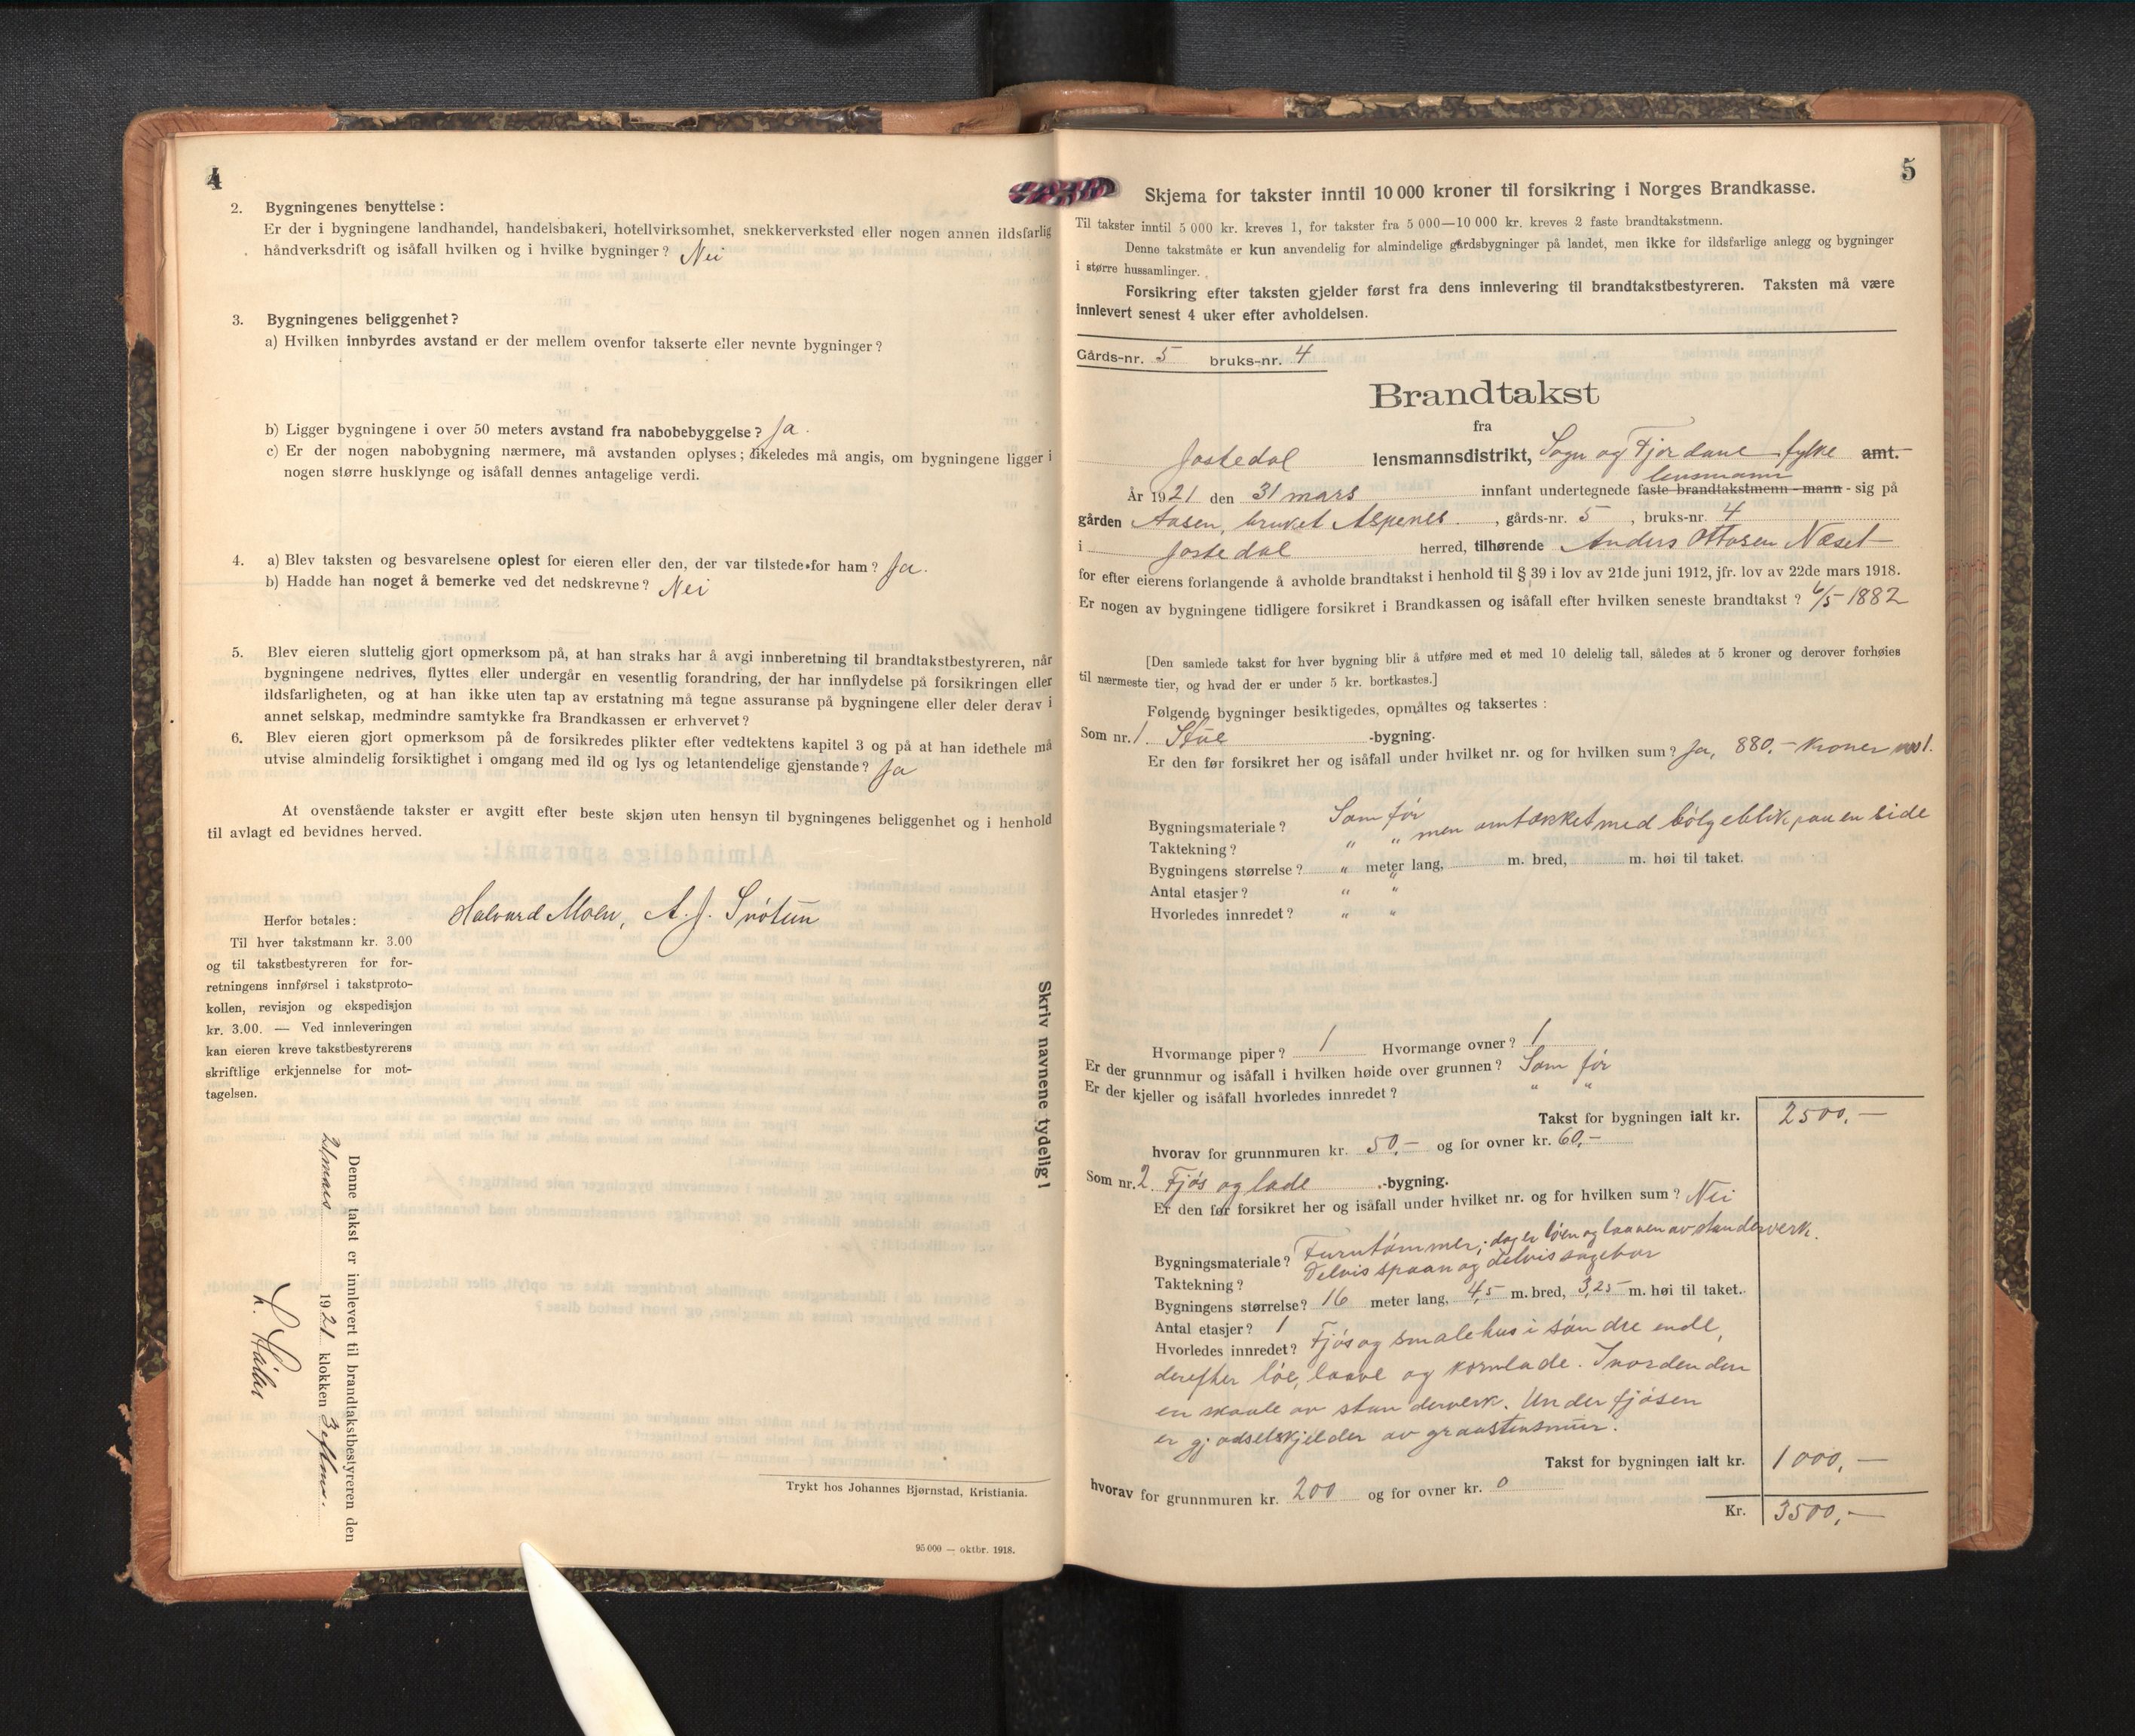 4
2. Bygningenes benyttelse:
Er der i bygningene landhandel, handelsbakeri, hotellvirksomhet, snekkerverksted eller nogen annen ildsfarlig
håndverksdrift og isåfall hvilken og i hvilke bygninger? Nei
3. Bygningenes beliggenhet?
a) Hvilken innbyrdes avstand er der mellem ovenfor takserte eller nevnte bygninger?
b) Ligger bygningene i over 50 meters avstand fra nabobebyggelse? Ja.
c) Er der nogen nabobygning nærmere, må avstanden oplyses; likeledes må angis, om bygningene ligger i
nogen større husklynge og isåfall dennes antagelige verdi.
4. a) Blev taksten og besvarelsene oplest for eieren eller den, der var tilstede for ham? Ja.
b) Hadde han noget å bemerke ved det nedskrevne? Nei
5. Blev eieren sluttelig gjort opmerksom på, at han straks har å avgi innberetning til brandtakstbestyreren, når
bygningene nedrives, flyttes eller undergår en vesentlig forandring, der har innflydelse på forsikringen eller
ildsfarligheten, og at han ikke uten tap av erstatning må tegne assuranse på bygningene eller deler derav i
annet selskap, medmindre samtykke fra Brandkassen er erhvervet?
6. Blev eieren gjort opmerksom på de forsikredes plikter efter vedtektens kapitel 3 og på at han idethele må
utvise almindelig forsiktighet i omgang med ild og lys og letantendelige gjenstande? Ja
At ovenstående takster er avgitt efter beste skjøn uten hensyn til bygningenes beliggenhet og i henhold
til avlagt ed bevidnes herved.
Halvard Moen, A. J. Snøtun
Herfor betales:
Til hver takstmann kr. 3.00
og til takstbestyreren for for-
retningens innførsel i takstproto-
kollen, revisjon og ekspedisjon
kr. 3.00. — Ved innleveringen
kan eieren kreve takstbestyrerens
skriftlige erkjennelse for mot-
tagelsen.
Skriv navnene tydelig!
Denne takst er innlevert til brandtakstbestyreren den
21 mars 1921 klokken 3
Trykt hos Johannes Bjørnstad, Kristiania.
95 000 — oktbr. 1918.
5
Skjema for takster inntil 10 000 kroner til forsikring i Norges Brandkasse.
Til takster inntil 5 000 kr. kreves 1, for takster fra 5 000—10 000 kr. kreves 2 faste brandtakstmenn.
Denne takstmåte er kun anvendelig for almindelige gårdsbygninger på landet, men ikke for ildsfarlige anlegg og bygninger
i større hussamlinger.
Forsikring efter taksten gjelder først fra dens innlevering til brandtakstbestyreren. Taksten må være
innlevert senest 4 uker efter avholdelsen.
Gårds-nr. 5 bruks-nr. 4
Brandtakst
fra
Jostedal lensmannsdistrikt, Sogn og Fjordane fylke amt.
lensmann
År 1921 den 31 mars innfant undertegnede faste brandtakstmenn - mann - sig på
gården Aasen, bruket Aspenes, gårds-nr. 5, bruks-nr. 4
i Jostedal herred, tilhørende Anders Ottosen Næset
for efter eierens forlangende å avholde brandtakst i henhold til § 39 i lov av 21de juni 1912, jfr. lov av 22de mars 1918.
Er nogen av bygningene tidligere forsikret i Brandkassen og isåfall efter hvilken seneste brandtakst? 6/5 1882
[Den samlede takst for hver bygning blir å utføre med et med 10 delelig tall, således at 5 kroner og derover forhøies
til nærmeste tier, og hvad der er under 5 kr. bortkastes.]
Følgende bygninger besiktigedes, opmåltes og taksertes:
Som nr. 1. Stue -bygning.
Er den før forsikret her og isåfall under hvilket nr. og for hvilken sum? Ja, 880,- kroner no 1.
Bygningsmateriale? Som før
Taktekning? " " men omtækket med bølgeblik paa en side
Bygningens størrelse? " " meter lang, m. bred, m. høi til taket.
Antal etasjer? " "
Hvorledes innredet? " "
Hvormange piper? 1 Hvormange ovner? 1
Er der grunnmur og isåfall i hvilken høide over grunnen? Som før
Er der kjeller og isåfall hvorledes innredet? " "
Takst for bygningen ialt kr. 2500,—
hvorav for grunnmuren kr. 50,- og for ovner kr. 60,-
Som nr. 2. Fjøs og lade -bygning.
Er den før forsikret her og isåfall under hvilket nr. og for hvilken sum? Nei
Bygningsmateriale? Furutømmer, dog er løen og laaven av standerverk.
Taktekning? Delvis spaan og delvis sagebor
Bygningens størrelse? 16 meter lang, 4,5 m. bred, 3,25 m. høi til taket.
Antal etasjer? 1
Hvorledes innredet? Fjøs og smalehus i søndre ende,
derefter løe, laave og kornlade. I norden den
en skaale av standerverk. Under fjøsen
er gjødselskjelder av graastensmur.
Takst for bygningen ialt kr. 1000,—
hvorav for grunnmuren kr. 200 og for ovner kr. 0
Kr. 3500,—